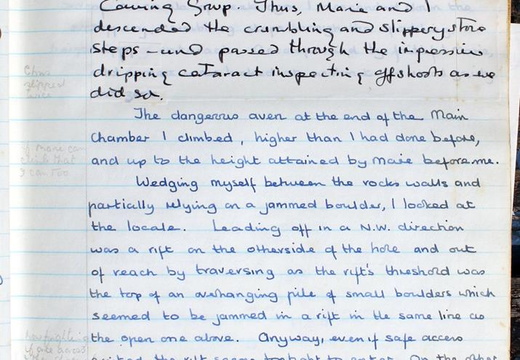 Caving Group. Thus, Marie and I
descended the crumbling and slippery stone
steps - and passed through the impressive
dripping cataract inspecting offshoots as we
did so.
The dangerous aven at the end of the Main
Chamber I climbed, higher than I had done before,
and up to the height attained by Marie before me.
Wedging myself between the rocks walls and
partially relying on a jammed boulder, I looked at
the locale. Leading off in a N.W. direction
was a rift on the otherside of the hole and out
of reach by traversing as the rift's threshold was
the top of an overhanging pile of small boulders which
seemed to be jammed in a rift in the same line as
the open one above. Anyway, even if safe access
the rift On the other